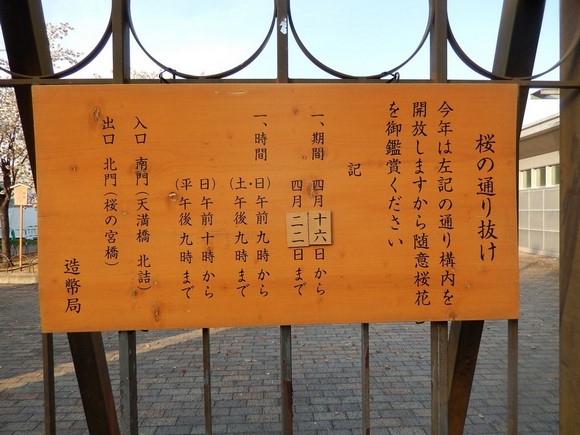 桜の通り抜け
今年は左記の通り構内を
開放しますから随意桜花
を御鑑賞ください
記
一、期間 四月十六日から
四月二二日まで
一、時間 (土・日)午前九時から
午後九時まで
(平日)午前十時から
午後九時まで
入口 南門(天満橋 北詰)
出口 北門(桜の宮橋)
造幣局